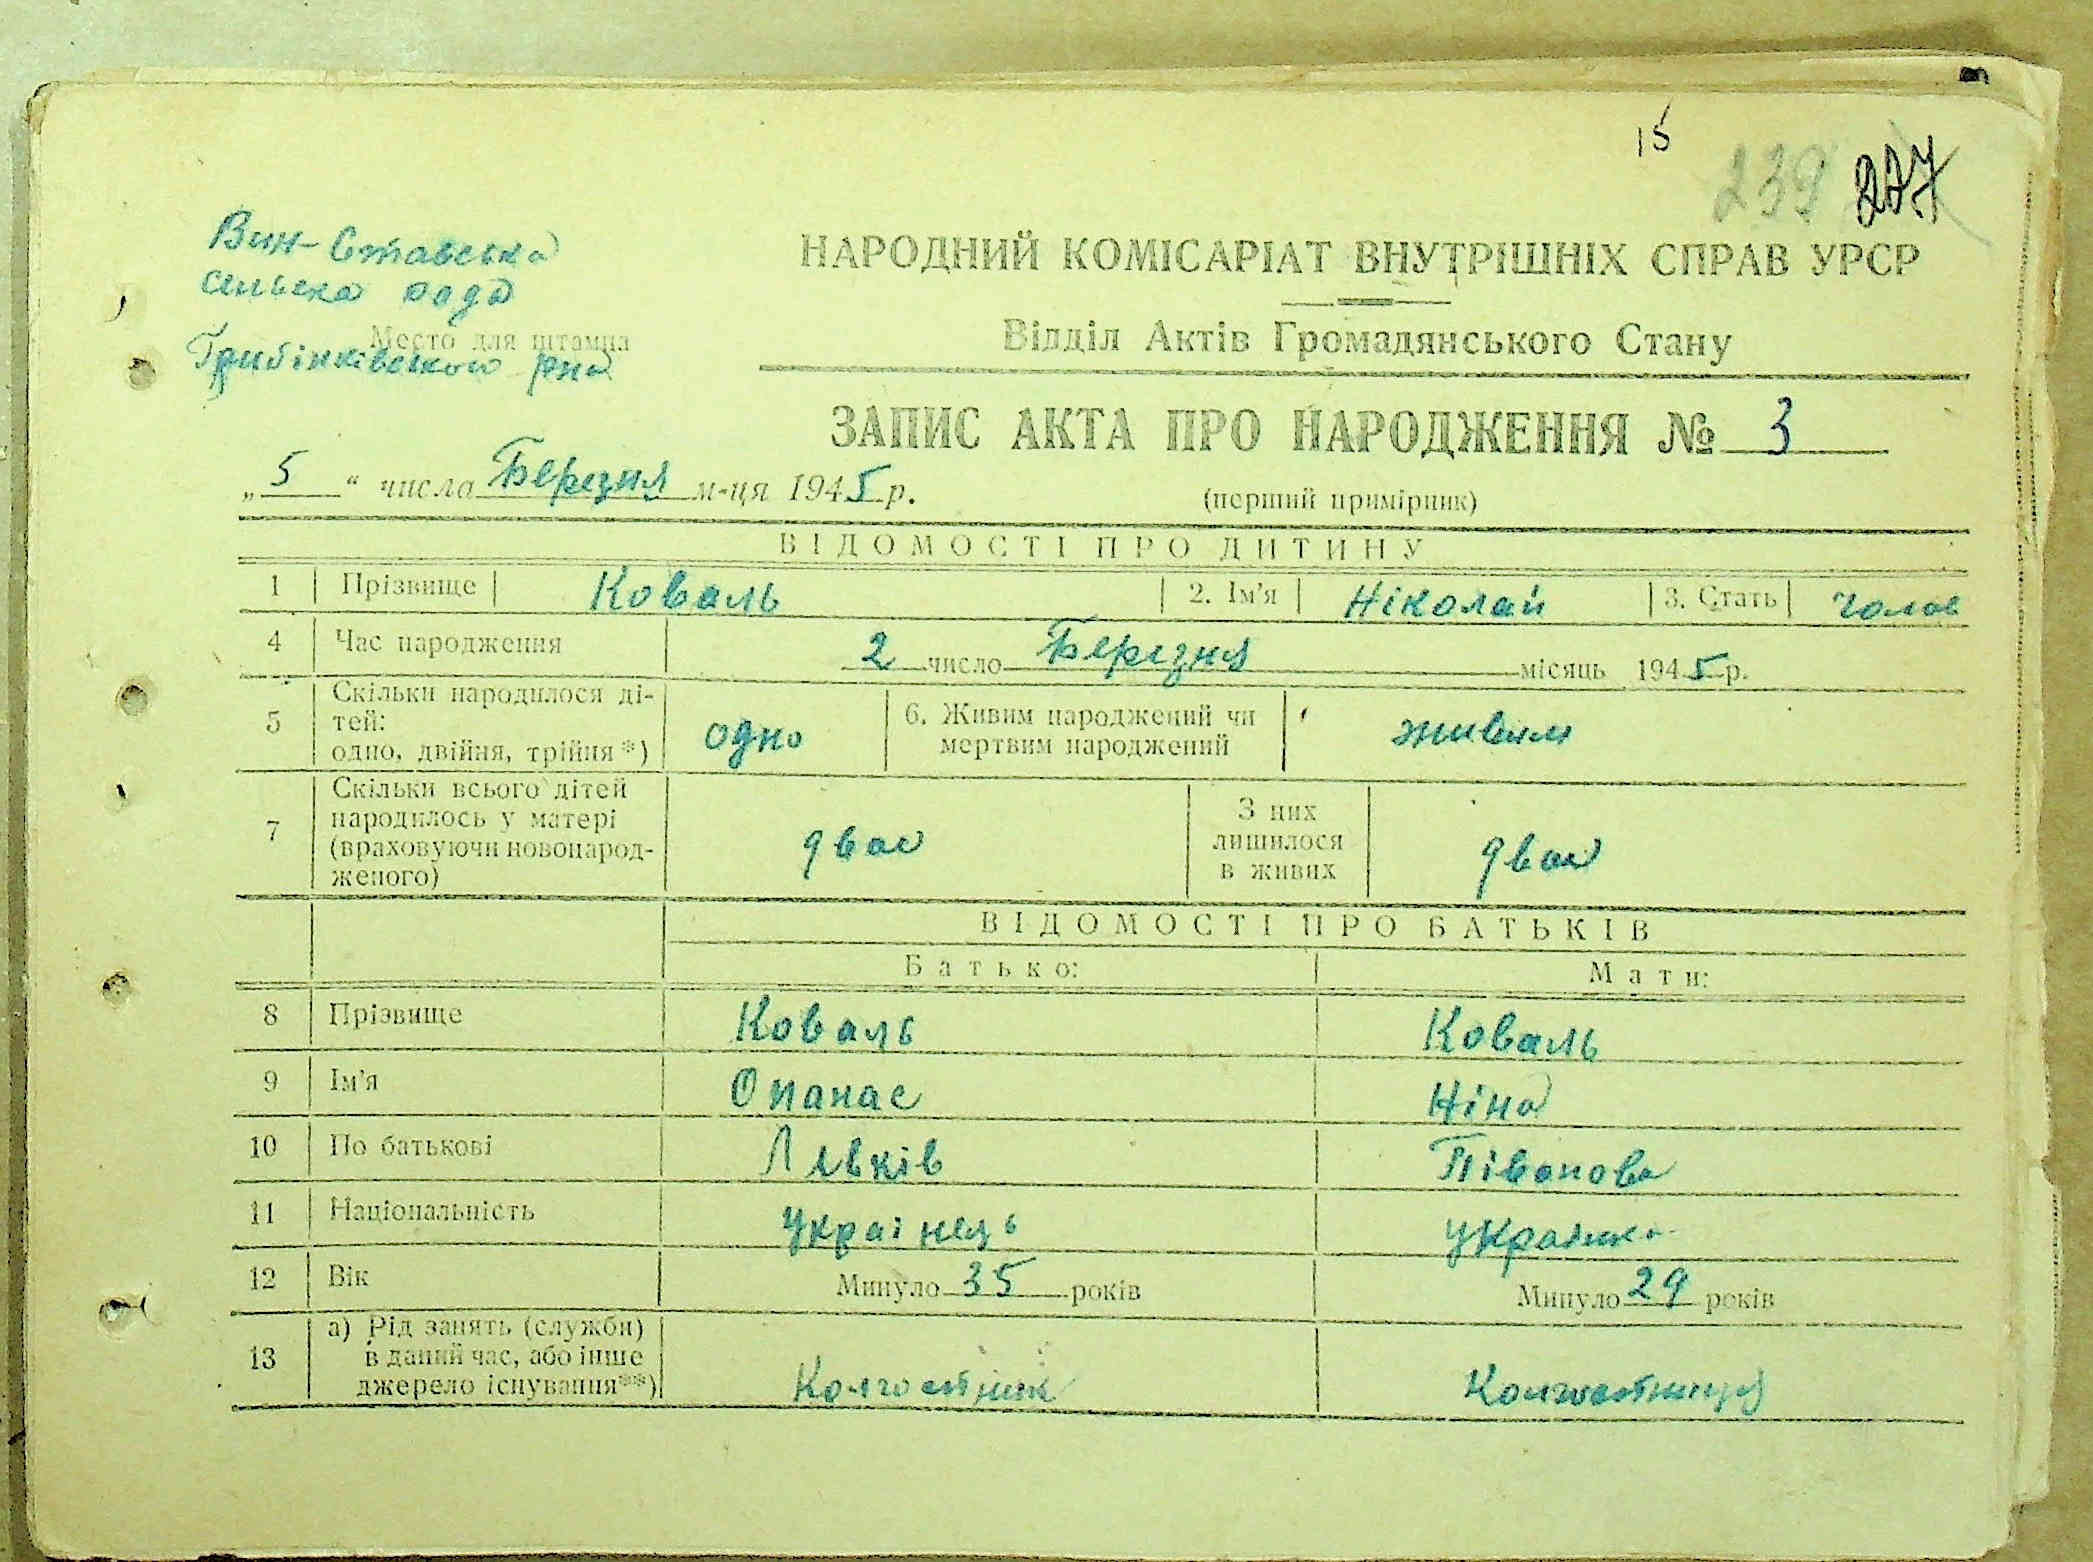 15
239 227
Вин-Ставська
сільска рада
Место для штампа
Гребінківського р-на
НАРОДНИЙ КОМІСАРІАТ ВНУТРІШНІХ СПРАВ УРСР
Відділ Актів Громадянського Стану
ЗАПИС АКТА ПРО НАРОДЖЕННЯ № 3
„ 5 “ числа Березня м-ця 1945 р.
(перший примірник)
ВІДОМОСТІ ПРО ДИТИНУ
1 Прізвище Коваль 2. Ім'я Ніколай 3. Стать чолов
4 Час народження 2 число Березня місяць 1945 р.
5 Скільки народилося ді-
тей:
одно, двійня, трійня*) одно 6. Живим народжений чи
мертвим народжений живим
7 Скільки всього дітей
народилось у матері
(враховуючи новонарод-
женого) двоє З них
лишилося
в живих двоє
ВІДОМОСТІ ПРО БАТЬКІВ
Батько: Мати:
8 Прізвище Коваль Коваль
9 Ім'я Опанас Ніна
10 По батькові Левків Півонова
11 Національність українець українка
12 Вік Минуло 35 років Минуло 29 років
13 а) Рід занять (служби)
в даний час, або інше
джерело існування**) Колгостник Колгостниця